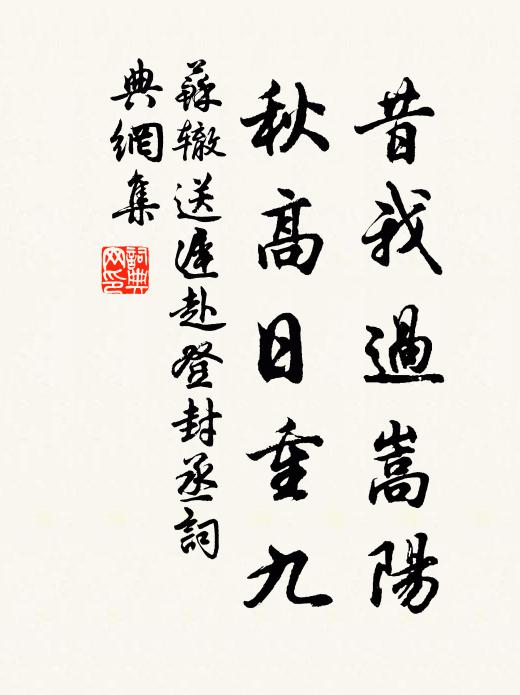 昔我過嵩陽
秋高日重九
蘇轍送遲赴登封丞詞
典網集
詞典網印